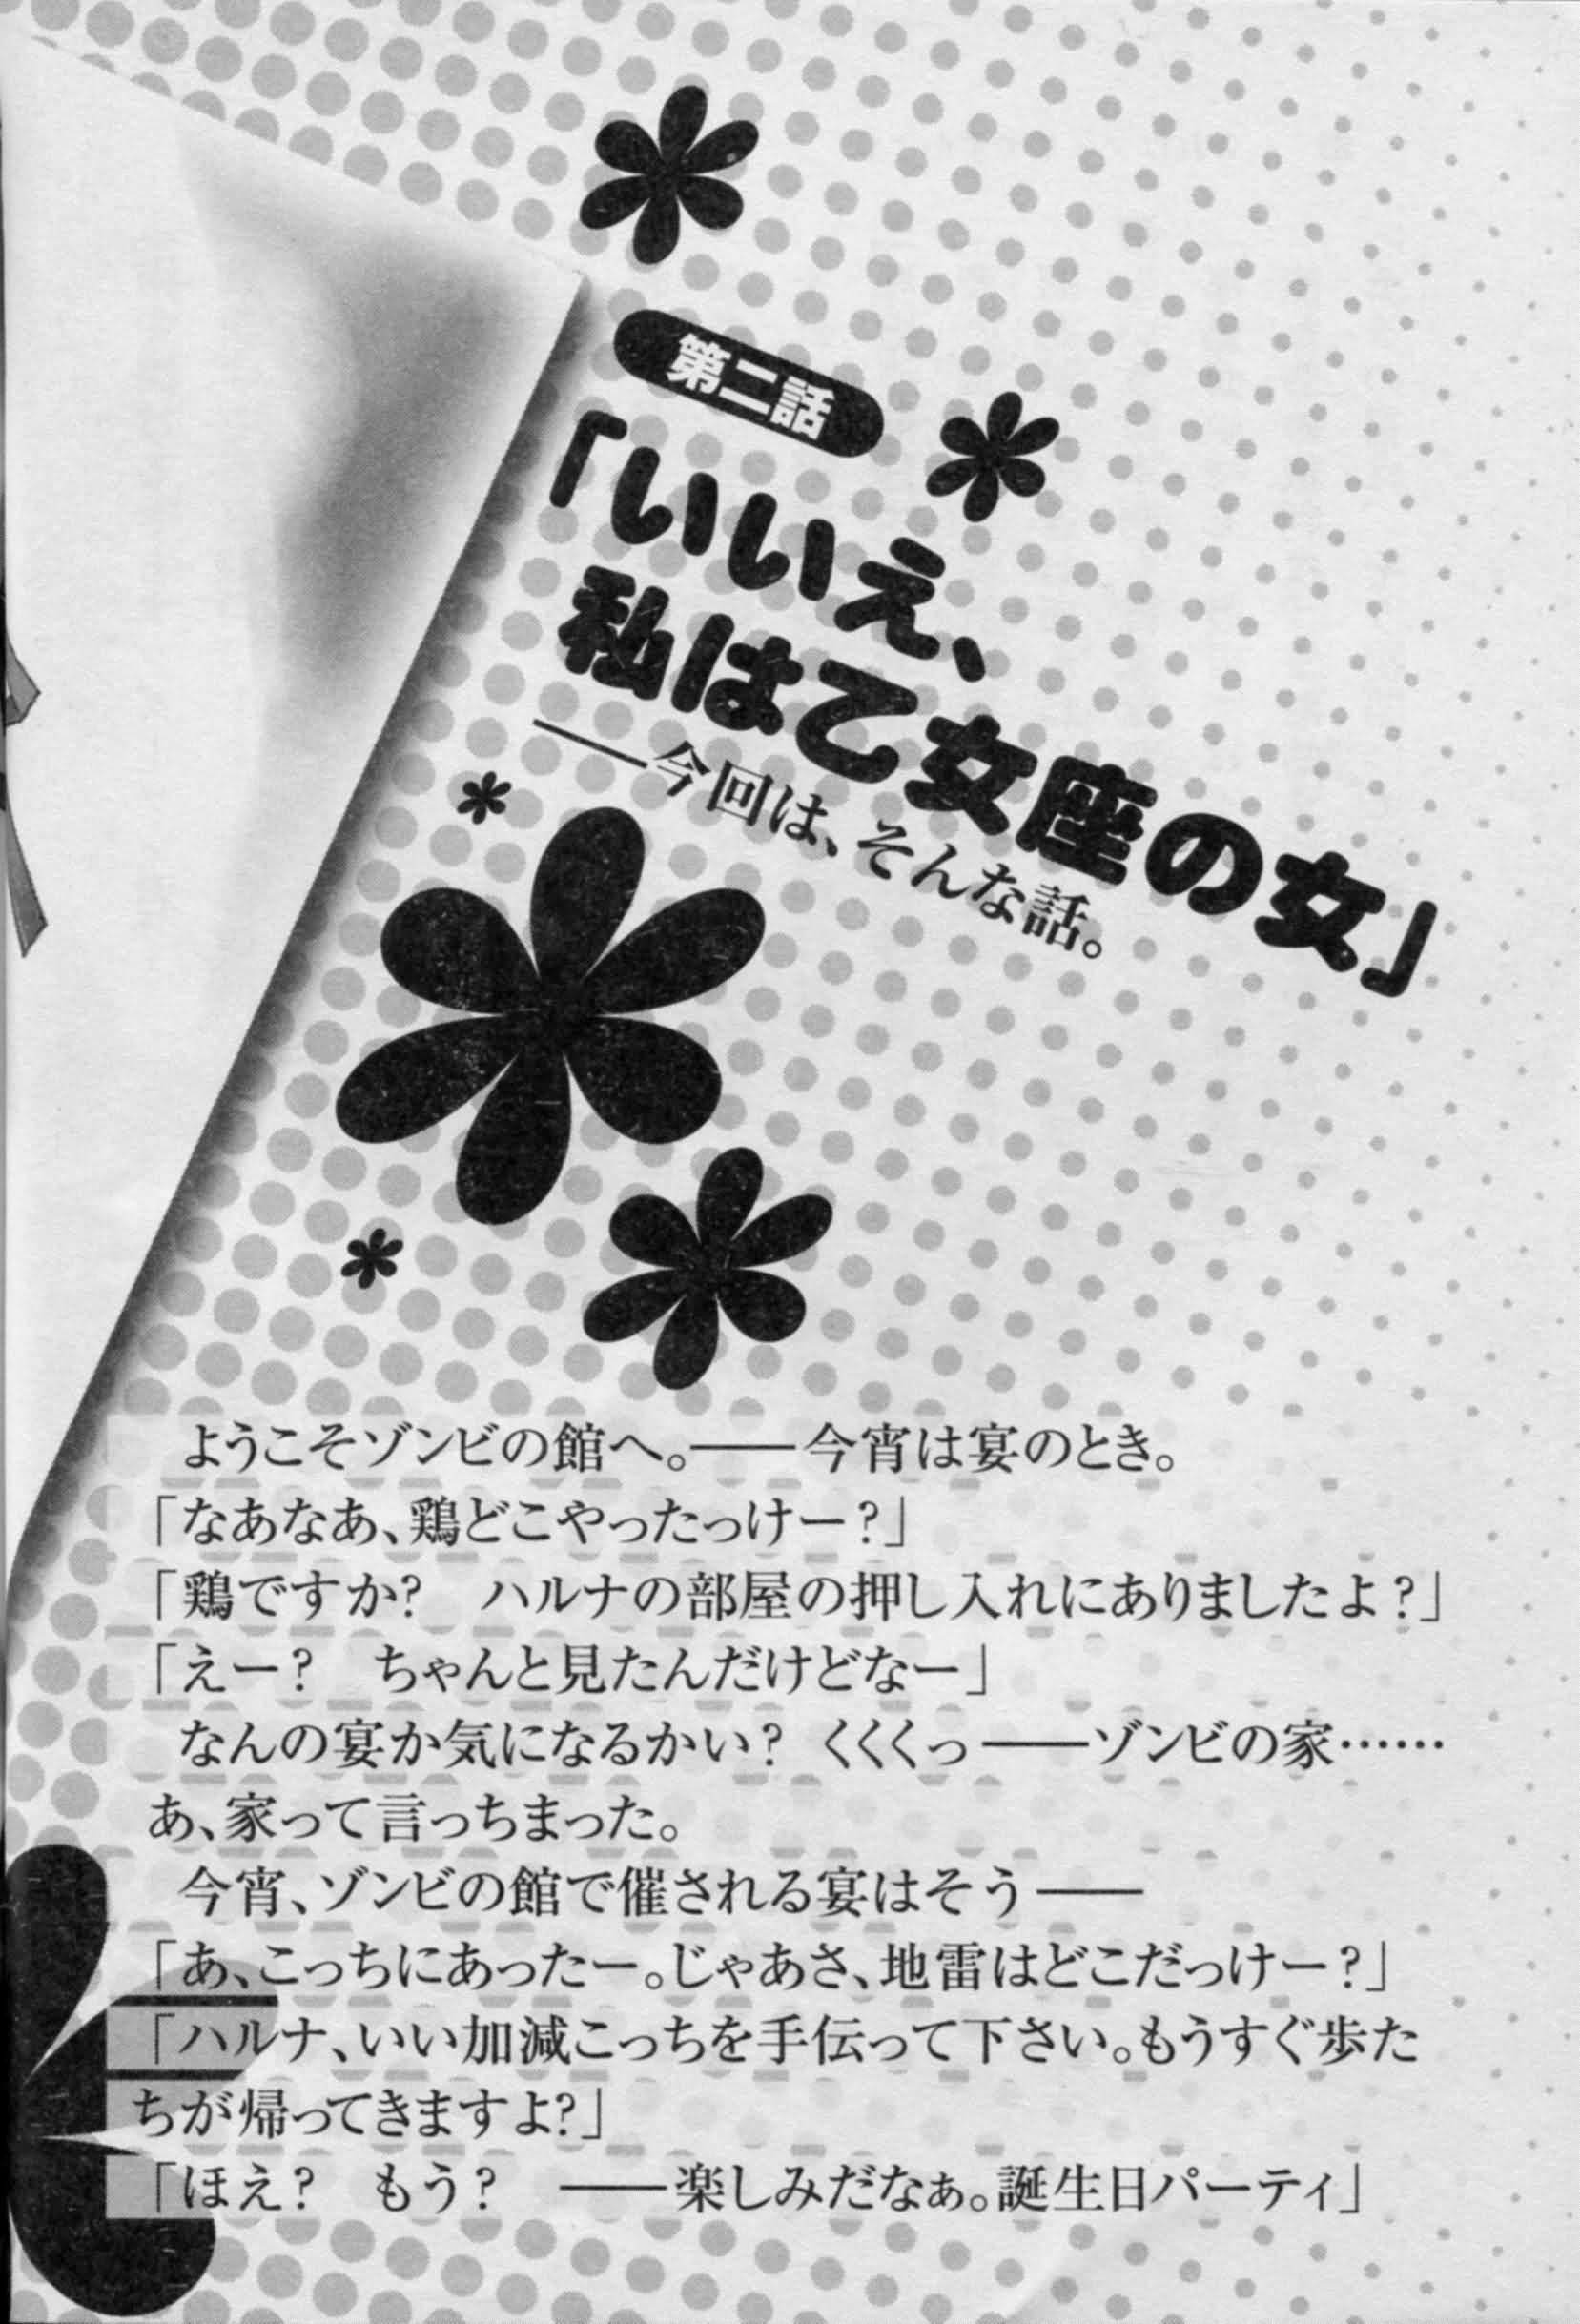 第二話
「いいえ、
私は乙女座の女」
――今回は、そんな話。
　ようこそゾンビの館へ。――今宵は宴のとき。
「なあなあ、鶏どこやったっけー?」
「鶏ですか?　ハルナの部屋の押し入れにありましたよ?」
「えー?　ちゃんと見たんだけどなー」
　なんの宴か気になるかい?　くくくっ――ゾンビの家……
あ、家って言っちまった。
　今宵、ゾンビの館で催される宴はそう――
「あ、こっちにあったー。じゃあさ、地雷はどこだっけー?」
「ハルナ、いい加減こっちを手伝って下さい。もうすぐ歩た
ちが帰ってきますよ?」
「ほえ?　もう?　――楽しみだなぁ。誕生日パーティ」